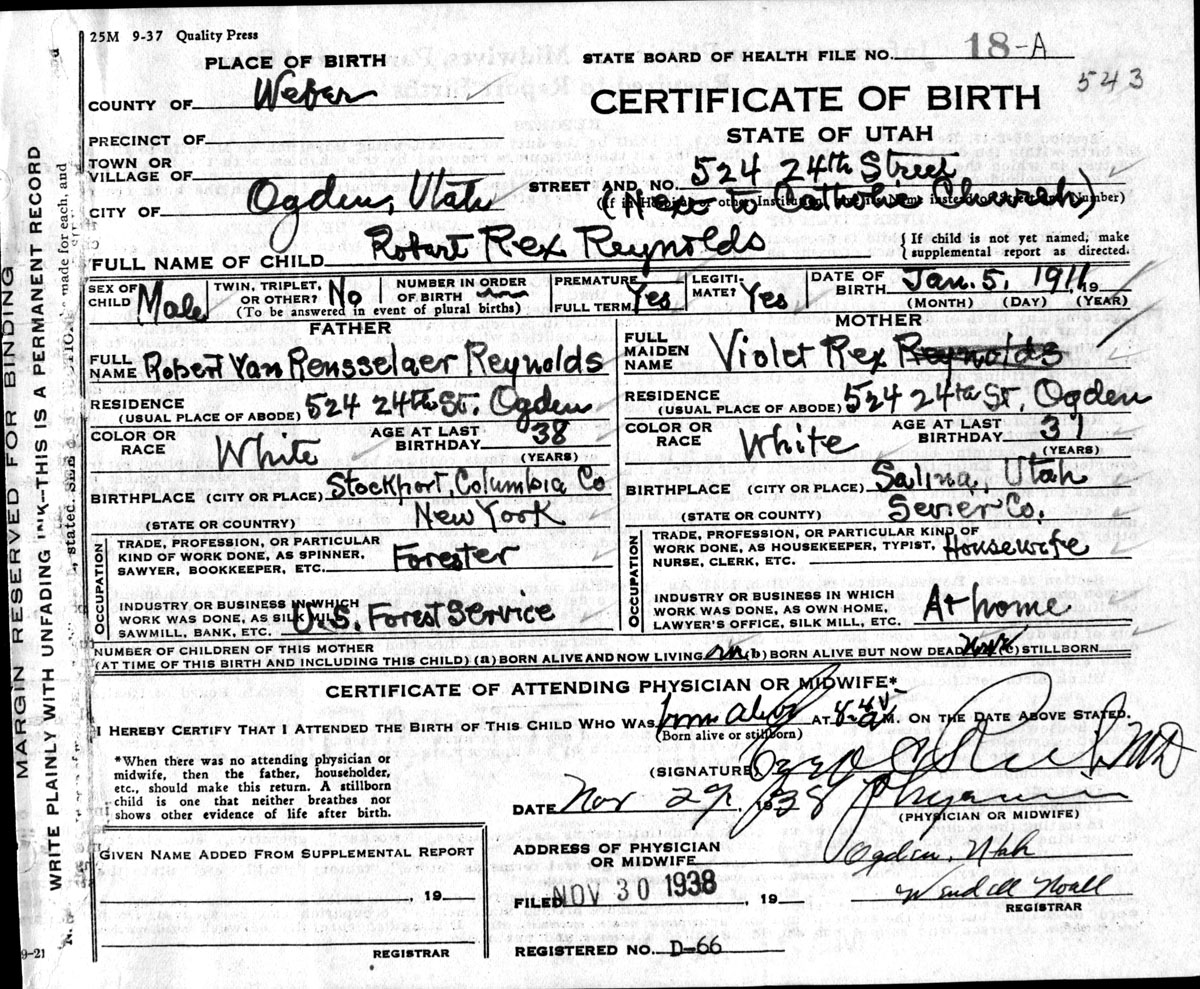 25M 9-37 Quality Press
PLACE OF BIRTH
STATE BOARD OF HEALTH FILE NO. 18-A
543
COUNTY OF Weber
CERTIFICATE OF BIRTH
STATE OF UTAH
PRECINCT OF
TOWN OR
VILLAGE OF
STREET AND NO. 524 24th Street
(Next to Catholic Church)
CITY OF Ogden, Utah
FULL NAME OF CHILD Robert Rex Reynolds
{If child is not yet named, make
supplemental report as directed.
SEX OF
CHILD Male
TWIN, TRIPLET,
OR OTHER? No
NUMBER IN ORDER
OF BIRTH
(To be answered in event of plural births)
PREMATURE
FULL TERM Yes
LEGITI-
MATE? Yes
DATE OF
BIRTH Jan. 5, 1911, 19
(MONTH) (DAY) (YEAR)
FATHER
FULL
NAME Robert Van Rensselaer Reynolds
RESIDENCE
(USUAL PLACE OF ABODE) 524 24th St. Ogden
COLOR OR
RACE White
AGE AT LAST
BIRTHDAY 38
(YEARS)
BIRTHPLACE (CITY OR PLACE) Stockport, Columbia Co
(STATE OR COUNTRY) New York
OCCUPATION
TRADE, PROFESSION, OR PARTICULAR
KIND OF WORK DONE, AS SPINNER,
SAWYER, BOOKKEEPER, ETC. Forester
INDUSTRY OR BUSINESS IN WHICH
WORK WAS DONE, AS SILK MILL,
SAWMILL, BANK, ETC. U.S. Forest Service
MOTHER
FULL
MAIDEN
NAME Violet Rex Reynolds
RESIDENCE
(USUAL PLACE OF ABODE) 524 24th St, Ogden
COLOR OR
RACE White
AGE AT LAST
BIRTHDAY 31
(YEARS)
BIRTHPLACE (CITY OR PLACE) Salina, Utah
(STATE OR COUNTY) Sevier Co.
OCCUPATION
TRADE, PROFESSION, OR PARTICULAR KIND OF
WORK DONE, AS HOUSEKEEPER, TYPIST,
NURSE, CLERK, ETC. Housewife
INDUSTRY OR BUSINESS IN WHICH
WORK WAS DONE, AS OWN HOME,
LAWYER'S OFFICE, SILK MILL, ETC. At home
NUMBER OF CHILDREN OF THIS MOTHER
(AT TIME OF THIS BIRTH AND INCLUDING THIS CHILD) (a) BORN ALIVE AND NOW LIVING (b) BORN ALIVE BUT NOW DEAD (c) STILLBORN
CERTIFICATE OF ATTENDING PHYSICIAN OR MIDWIFE*
I HEREBY CERTIFY THAT I ATTENDED THE BIRTH OF THIS CHILD WHO WAS born alive AT M. ON THE DATE ABOVE STATED.
(Born alive or stillborn)
*When there was no attending physician or
midwife, then the father, householder,
etc., should make this return. A stillborn
child is one that neither breathes nor
shows other evidence of life after birth.
(SIGNATURE) MD
DATE Nov 29, 1938 Physician
(PHYSICIAN OR MIDWIFE)
ADDRESS OF PHYSICIAN
OR MIDWIFE Ogden, Utah
GIVEN NAME ADDED FROM SUPPLEMENTAL REPORT
, 19
REGISTRAR
FILED NOV 30 1938, 19
REGISTRAR
REGISTERED NO. D-66
MARGIN RESERVED FOR BINDING
WRITE PLAINLY WITH UNFADING INK—THIS IS A PERMANENT RECORD